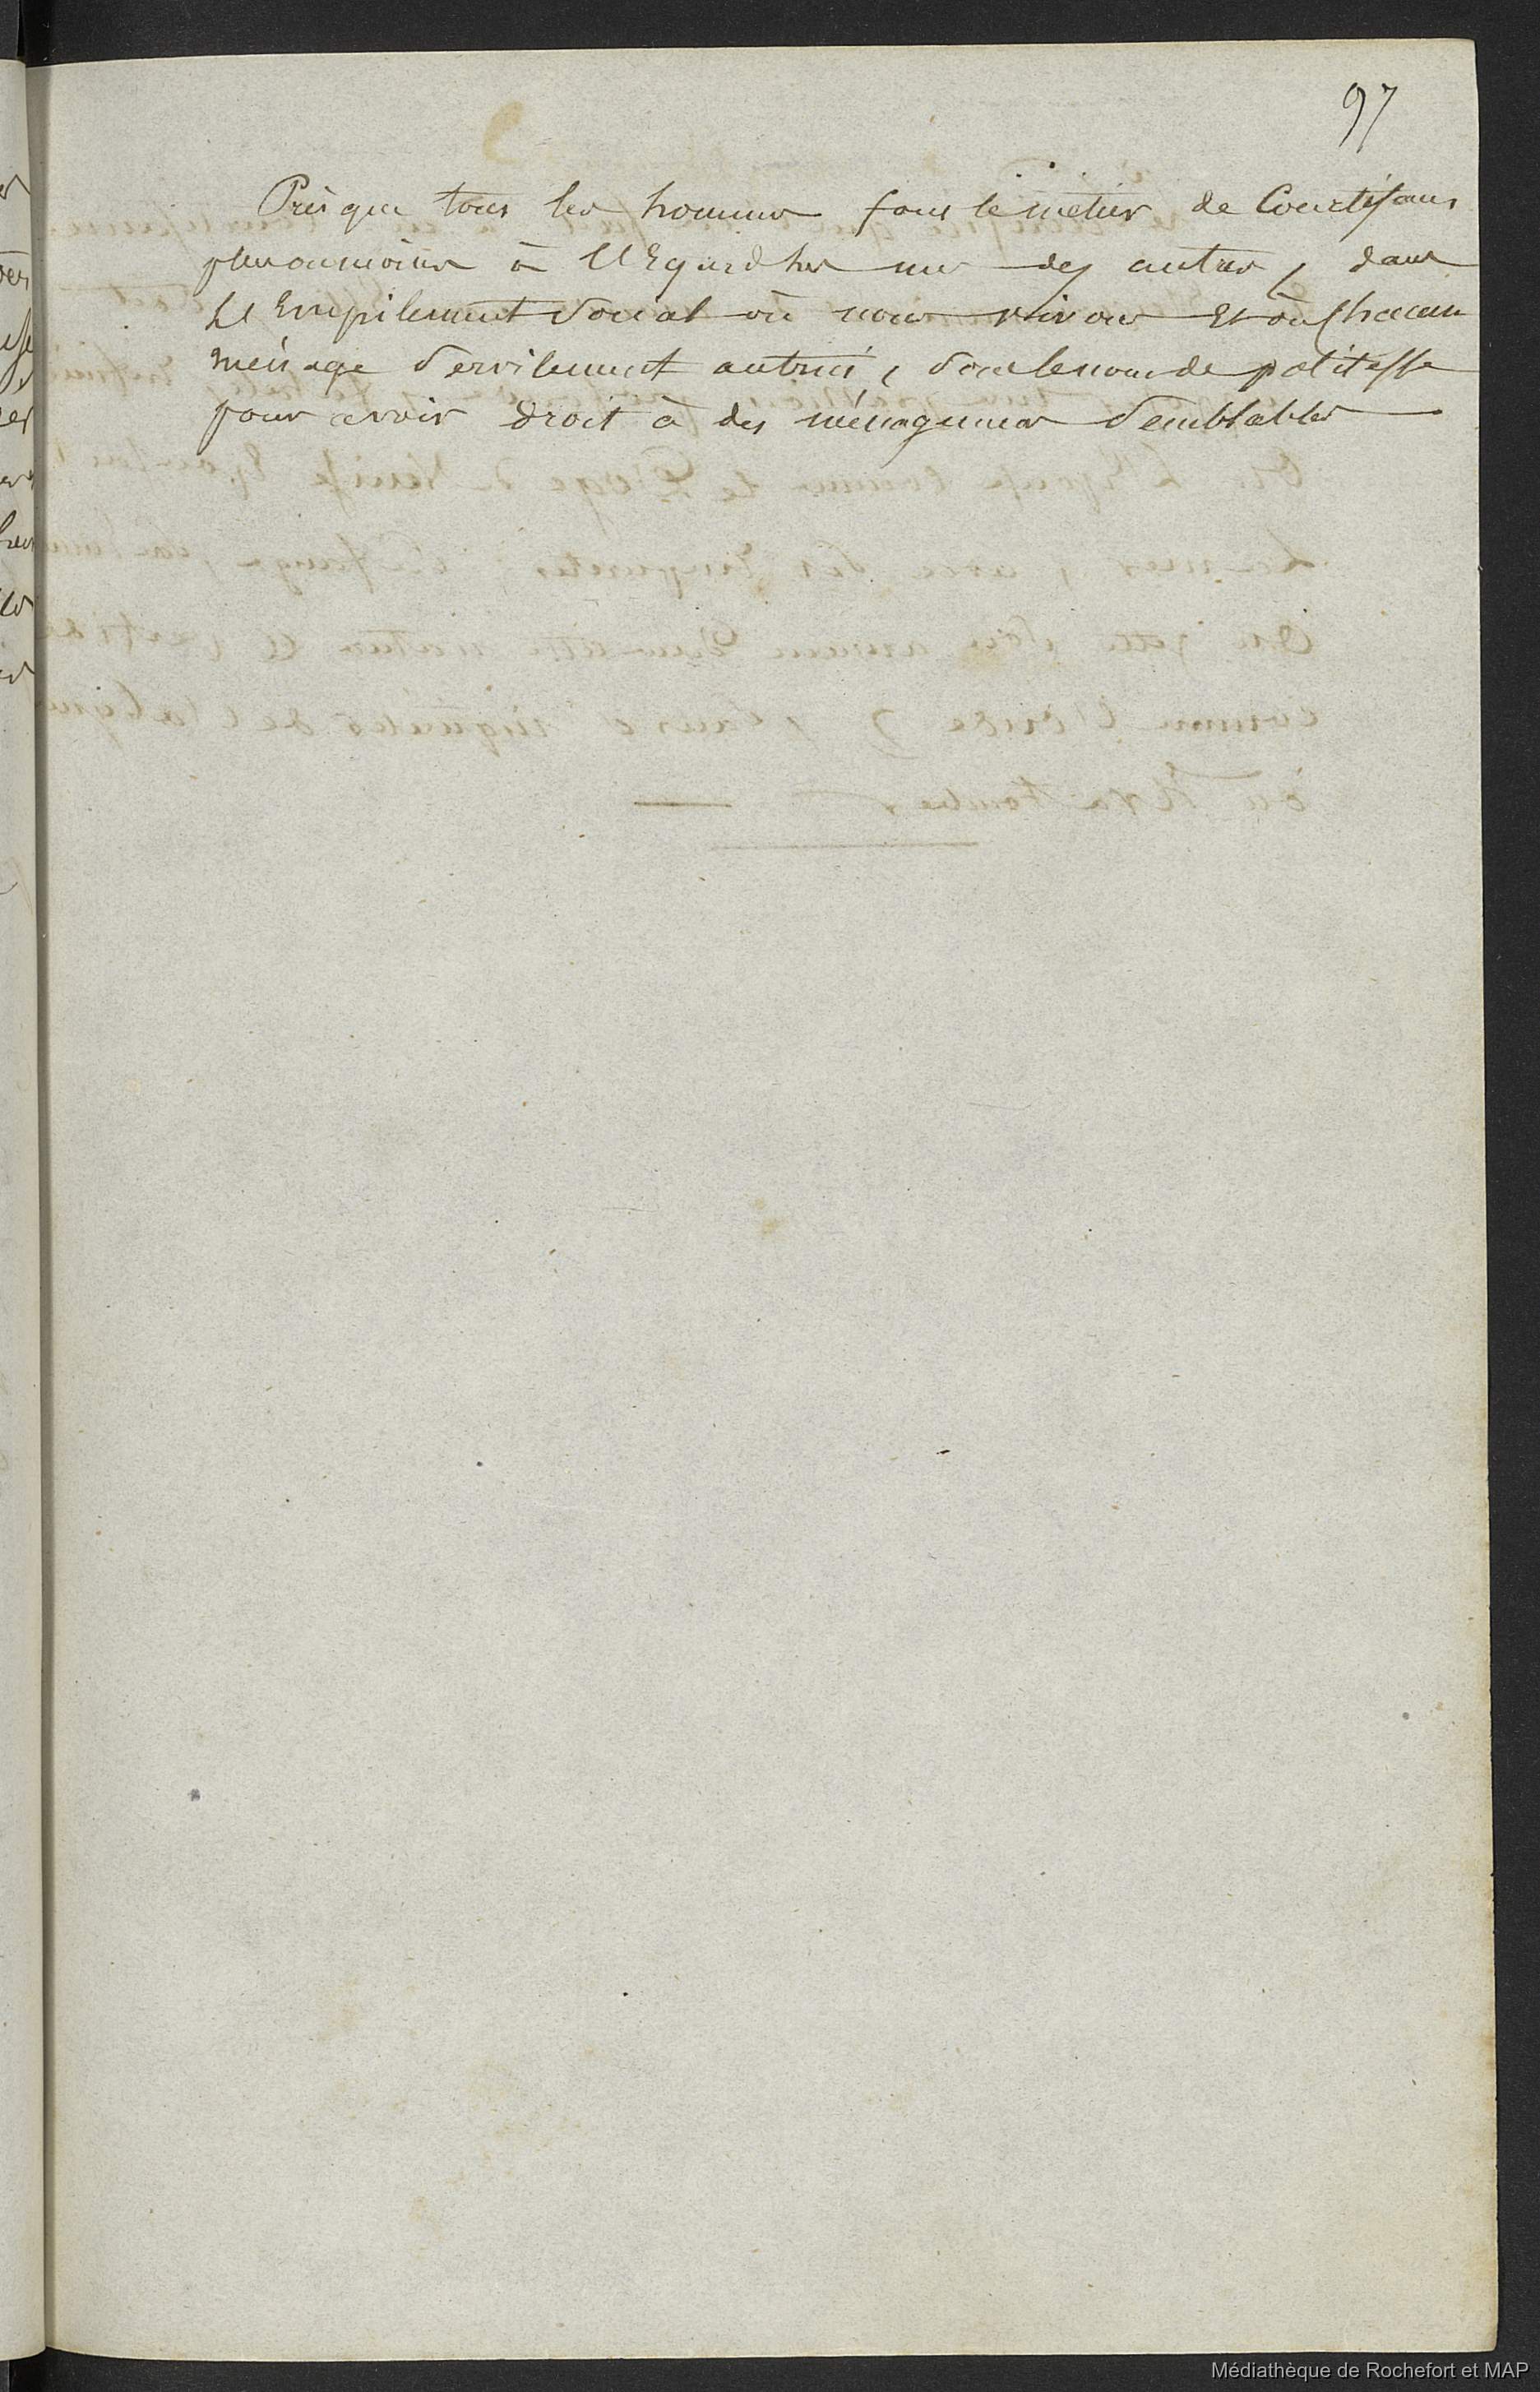 97
Presque tous les hommes font le métier de Courtisans
plus ou moins à l'Egard les uns des autres, dans
L'Empilement Social où nous vivons Et où Chacun
ménage Servilement autrui, Sous le nom de politesse
pour avoir droit à des ménagemens Semblables
Médiathèque de Rochefort et MAP